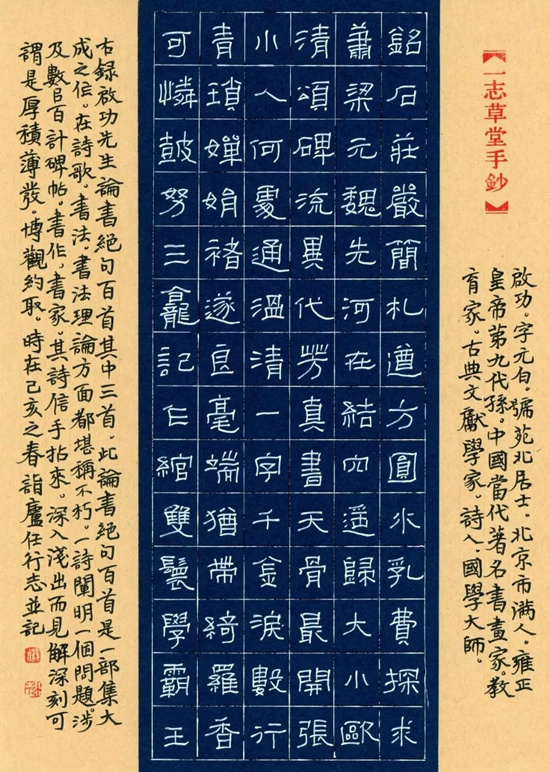 【一志草堂手鈔】
啟功。字元白。號苑北居士。北京市滿人。雍正
皇帝第九代孫。中國當代著名書畫家。教
育家。古典文獻學家。詩人。國學大師。
銘石莊嚴簡札遒方圓水乳費探求
蕭梁元魏先河在結穴遙歸大小歐
清頌碑流異代芳真書天骨最開張
小人何處通溫清一字千金淚數行
青瑣嬋娟褚遂良毫端猶帶綺羅香
可憐鼓努三龕記仁綰雙鬟學霸王
右錄啟功先生論書絕句百首其中三首。此論書絕句百首是一部集大
成之信。在詩歌。書法。書法理論方面都堪稱不朽。一詩闡明一個問題。涉
及數㠯百計碑帖。書作。書家。其詩信手拈來。深入淺出而見解深刻可
謂是厚積薄發。博觀約取。時在己亥之春詣廬任行志並記